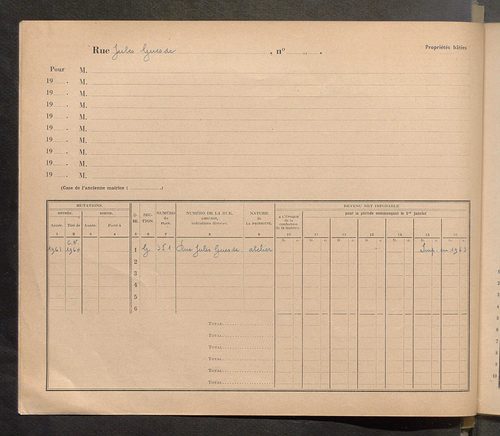 Rue Jules Guesde, n°
Propriétés bâties
Pour M.
19 M.
19 M.
19 M.
19 M.
19 M.
19 M.
19 M.
19 M.
19 M.
(Case de l'ancienne matrice : )
MUTATIONS. SECTION. NUMÉRO du PLAN. NUMÉRO DE LA RUE, NATURE de LA PROPRIÉTÉ. REVENU NET IMPOSABLE
pour la période commençant le 1er janvier
Année. Tiré de Année. Porté à
1 2 3 4 5 6 7 8 9 10 11 12 13 14 15 16
1961 C.N. 1960 1 G. 351 Rue Jules Guesde atelier Imp. en 1963
2
3
4
5
6
TOTAL
TOTAL
TOTAL
TOTAL
TOTAL
TOTAL